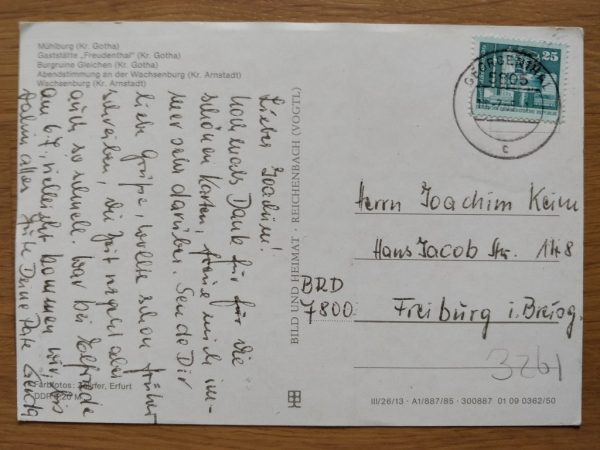 Mühlburg (Kr. Gotha)
Gaststätte „Freudenthal" (Kr. Gotha)
Burgruine Gleichen (Kr. Gotha)
Abendstimmung an der Wachsenburg (Kr. Arnstadt)
Wachsenburg (Kr. Arnstadt)
Lieber Joachim!
Hochmals Dank für für die
schönen Karten, freue mich im-
mer sehr darüber. Sende Dir
liebe Grüße, wollte schon früher
schreiben, die Zeit vergeht aber
auch so schnell. War bei
am 6.7., vielleicht kommen wir
alles Gute Deine
Farbfotos: Erfurt
DDR 0,20 M
BILD UND HEIMAT · REICHENBACH (VOGTL)
GEORGENTHAL
5805
c
25
Herrn Joachim Keim
Hans Jacob Str. 148
BRD
7800 Freiburg i. Breisg.
3261
III/26/13 · A1/887/85 · 300887 01 09 0362/50